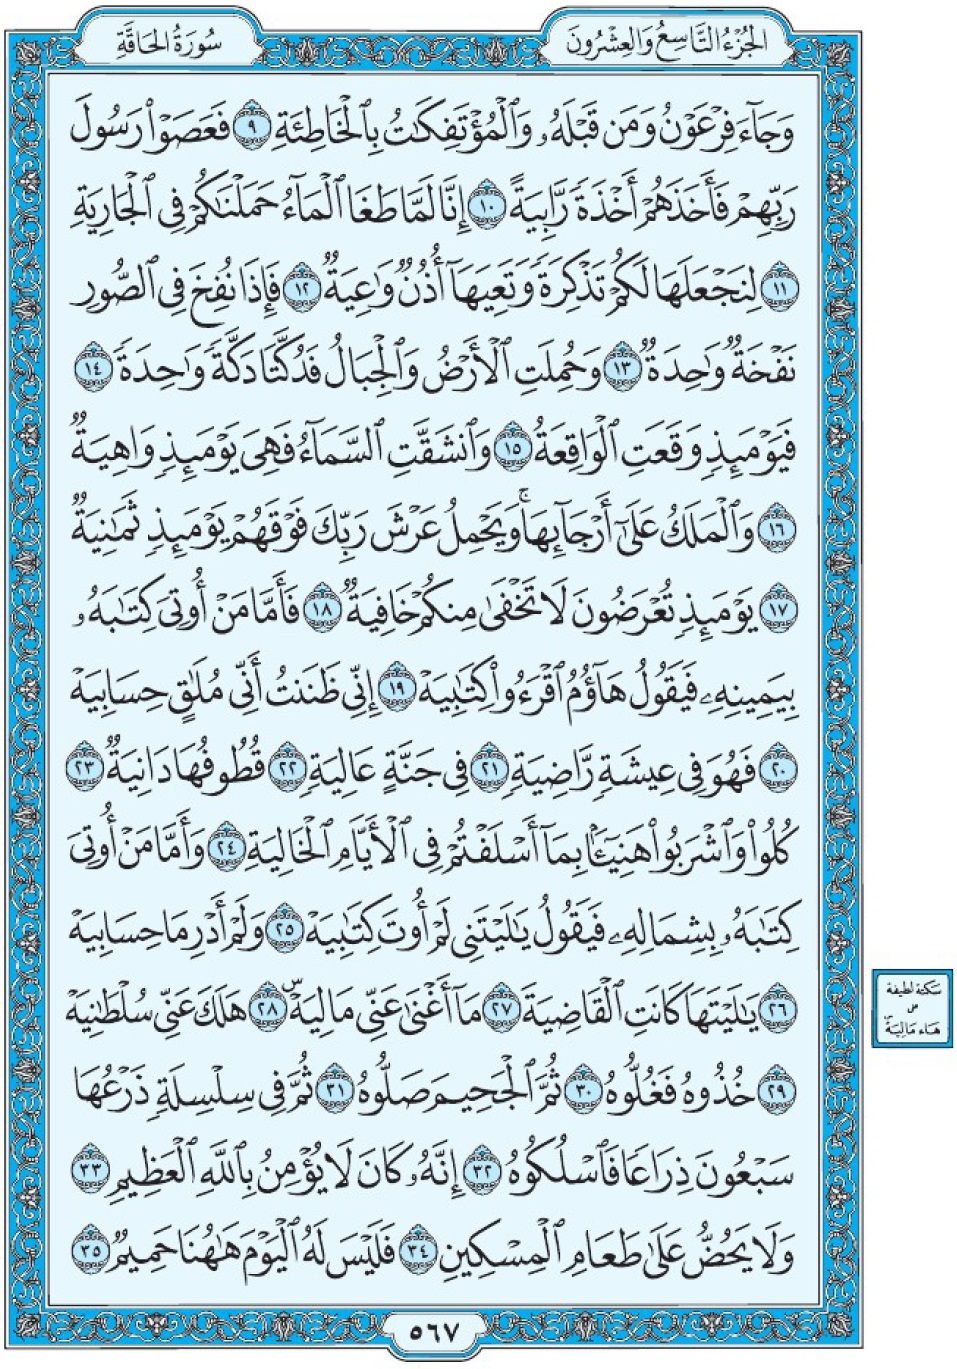 الجُزْءُ التَّاسِعُ وَالعِشْرُونَ
سُورَةُ الحَاقَّةِ
وَجَآءَ فِرْعَوْنُ وَمَن قَبْلَهُۥ وَٱلْمُؤْتَفِكَٰتُ بِٱلْخَاطِئَةِ ٩ فَعَصَوْا۟ رَسُولَ
رَبِّهِمْ فَأَخَذَهُمْ أَخْذَةً رَّابِيَةً ١٠ إِنَّا لَمَّا طَغَا ٱلْمَآءُ حَمَلْنَٰكُمْ فِى ٱلْجَارِيَةِ
١١ لِنَجْعَلَهَا لَكُمْ تَذْكِرَةً وَتَعِيَهَآ أُذُنٌ وَٰعِيَةٌ ١٢ فَإِذَا نُفِخَ فِى ٱلصُّورِ
نَفْخَةٌ وَٰحِدَةٌ ١٣ وَحُمِلَتِ ٱلْأَرْضُ وَٱلْجِبَالُ فَدُكَّتَا دَكَّةً وَٰحِدَةً ١٤
فَيَوْمَئِذٍ وَقَعَتِ ٱلْوَاقِعَةُ ١٥ وَٱنشَقَّتِ ٱلسَّمَآءُ فَهِىَ يَوْمَئِذٍ وَاهِيَةٌ
١٦ وَٱلْمَلَكُ عَلَىٰٓ أَرْجَآئِهَا ۚ وَيَحْمِلُ عَرْشَ رَبِّكَ فَوْقَهُمْ يَوْمَئِذٍ ثَمَٰنِيَةٌ
١٧ يَوْمَئِذٍ تُعْرَضُونَ لَا تَخْفَىٰ مِنكُمْ خَافِيَةٌ ١٨ فَأَمَّا مَنْ أُوتِىَ كِتَٰبَهُۥ
بِيَمِينِهِۦ فَيَقُولُ هَآؤُمُ ٱقْرَءُوا۟ كِتَٰبِيَهْ ١٩ إِنِّى ظَنَنتُ أَنِّى مُلَٰقٍ حِسَابِيَهْ
٢٠ فَهُوَ فِى عِيشَةٍ رَّاضِيَةٍ ٢١ فِى جَنَّةٍ عَالِيَةٍ ٢٢ قُطُوفُهَا دَانِيَةٌ ٢٣
كُلُوا۟ وَٱشْرَبُوا۟ هَنِيٓـًٔۢا بِمَآ أَسْلَفْتُمْ فِى ٱلْأَيَّامِ ٱلْخَالِيَةِ ٢٤ وَأَمَّا مَنْ أُوتِىَ
كِتَٰبَهُۥ بِشِمَالِهِۦ فَيَقُولُ يَٰلَيْتَنِى لَمْ أُوتَ كِتَٰبِيَهْ ٢٥ وَلَمْ أَدْرِ مَا حِسَابِيَهْ
٢٦ يَٰلَيْتَهَا كَانَتِ ٱلْقَاضِيَةَ ٢٧ مَآ أَغْنَىٰ عَنِّى مَالِيَهْ ۜ ٢٨ هَلَكَ عَنِّى سُلْطَٰنِيَهْ
٢٩ خُذُوهُ فَغُلُّوهُ ٣٠ ثُمَّ ٱلْجَحِيمَ صَلُّوهُ ٣١ ثُمَّ فِى سِلْسِلَةٍ ذَرْعُهَا
سَبْعُونَ ذِرَاعًا فَٱسْلُكُوهُ ٣٢ إِنَّهُۥ كَانَ لَا يُؤْمِنُ بِٱللَّهِ ٱلْعَظِيمِ ٣٣
وَلَا يَحُضُّ عَلَىٰ طَعَامِ ٱلْمِسْكِينِ ٣٤ فَلَيْسَ لَهُ ٱلْيَوْمَ هَٰهُنَا حَمِيمٌ ٣٥
سَكتة لطيفة
على
هَاء مَالِيَهْ ۜ
٥٦٧